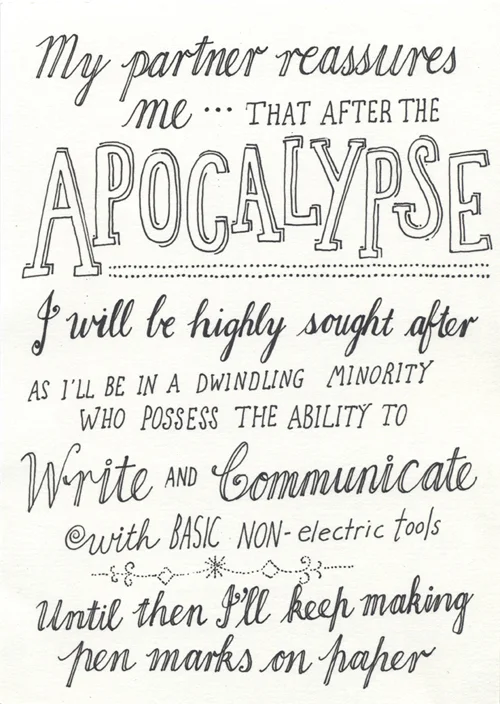 My partner reassures
me ... THAT AFTER THE
APOCALYPSE
I will be highly sought after
AS I'LL BE IN A DWINDLING MINORITY
WHO POSSESS THE ABILITY TO
Write AND Communicate
with BASIC NON-electric tools
Until then I'll keep making
pen marks on paper